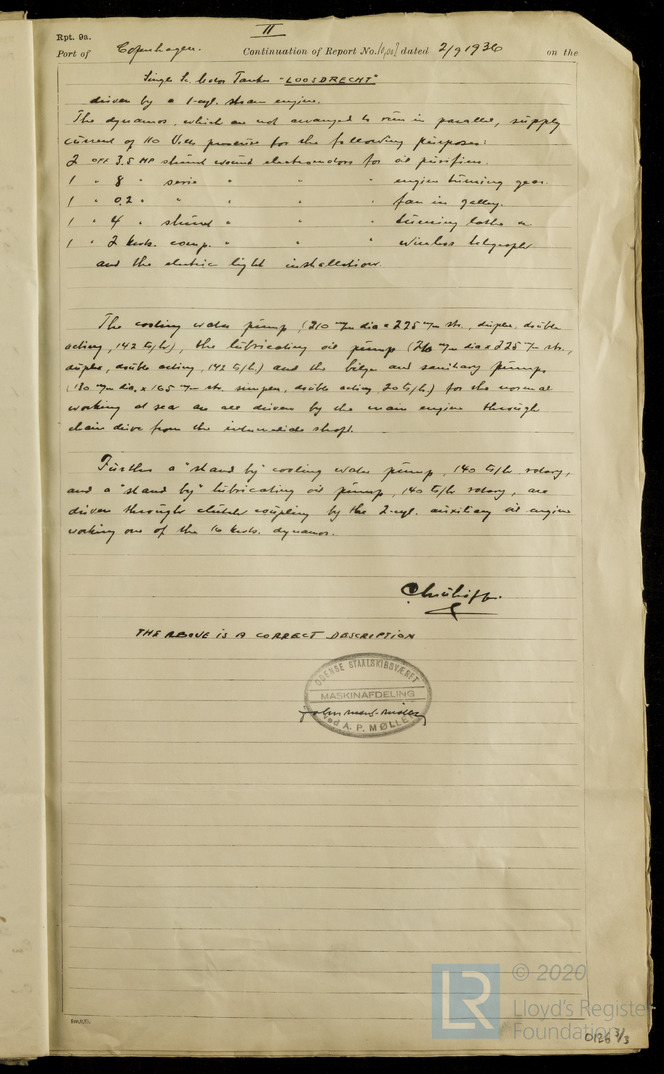 II
Rpt. 9a.
Port of Copenhagen. Continuation of Report No. dated 2/9 1936 on the
Single Sc. Motor Tanker "LOOSDRECHT"
driven by a 1-cyl. steam engine.
The dynamos, which are not arranged to run in parallel, supply
current of 110 Volts pressure for the following purposes:
2 off 3.5 HP shunt wound electromotors for oil purifiers.
1 " 8 " serie " " " engine turning gear.
1 " 0.2 " " " " fan in galley.
1 " 4 " shunt " " " turning lathe
1 " 2 kwts. comp. " " " wireless telegraphy
and the electric light installation.
The cooling water pump (210 m/m dia x 225 m/m str., duplex, double
acting, 142 ts/h), the lubricating oil pump (210 m/m dia x 225 m/m str.,
duplex, double acting, 142 ts/h) and the bilge and sanitary pumps
(130 m/m dia. x 165 m/m str. simplex, double acting 20 ts/h) for the normal
working at sea are all driven by the main engine through
chain drive from the intermediate shaft.
Further a "stand by" cooling water pump, 140 ts/hr rotary,
and a "stand by" lubricating oil pump, 140 ts/hr rotary, are
driven through clutch coupling by the 2-cyl. auxiliary oil engine
working one of the 16 kwts. dynamos.
THE ABOVE IS A CORRECT DESCRIPTION
ODENSE STAALSKIBSVÆRFT
MASKINAFDELING
ved A. P. MØLLER
© 2020
LR
Lloyd's Register
Foundation
0126 3/3